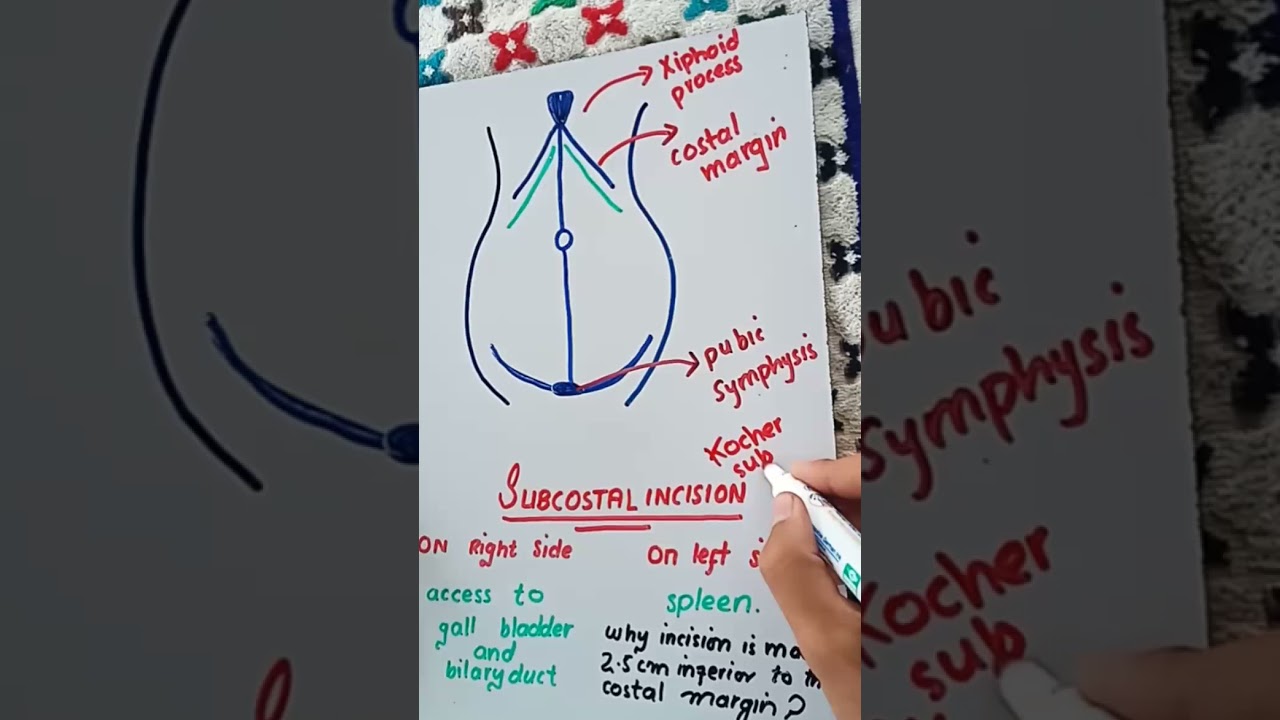 Xiphoid
process
costal
margin
pubic
symphysis
Kocher
sub
SUBCOSTAL INCISION
ON Right side
On left
access to
gall bladder
and
bilary duct
spleen.
why incision is
2.5cm inferior to
costal margin?
ubic
symphysis
Kocher
sub